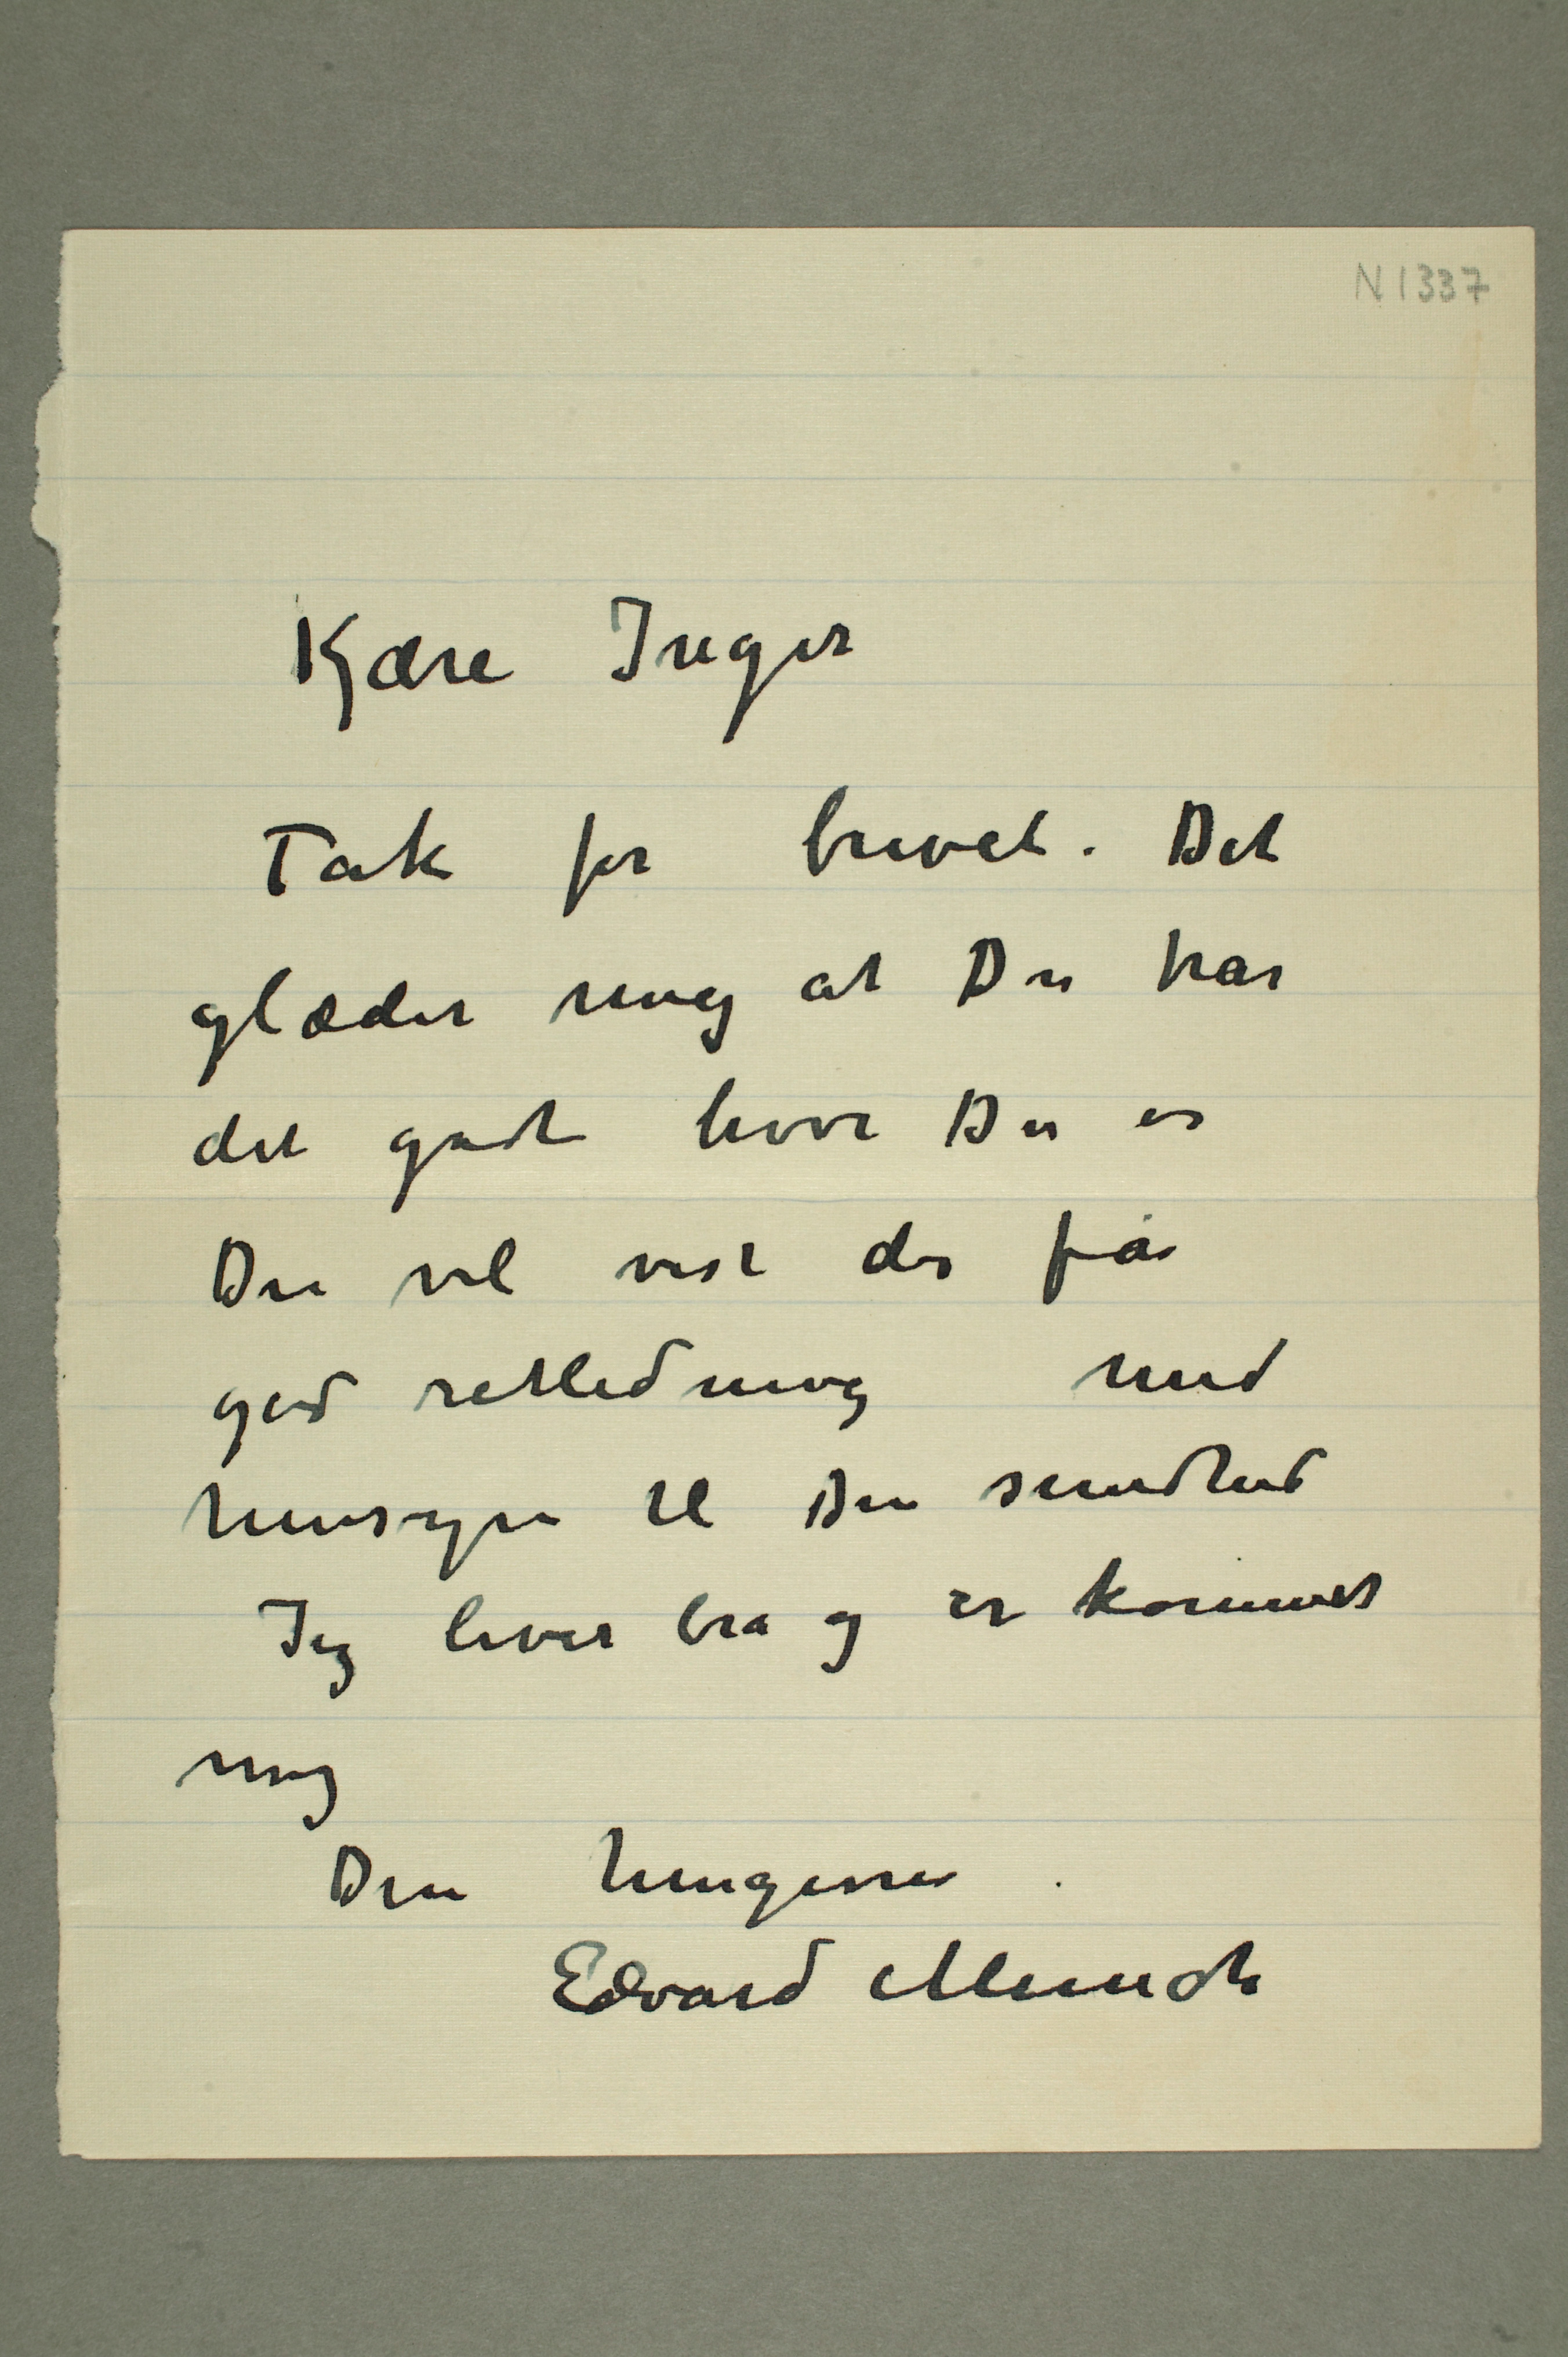 N 1337
Kjære Inger
Tak for brevet. Det
glæder mig at Du har
det godt hvor Du er
Du vil vist der få
god retledning med
hensyn til Din sundhed
Jeg lever bra og er kommet
mig
Din hengivne
Edvard Munch